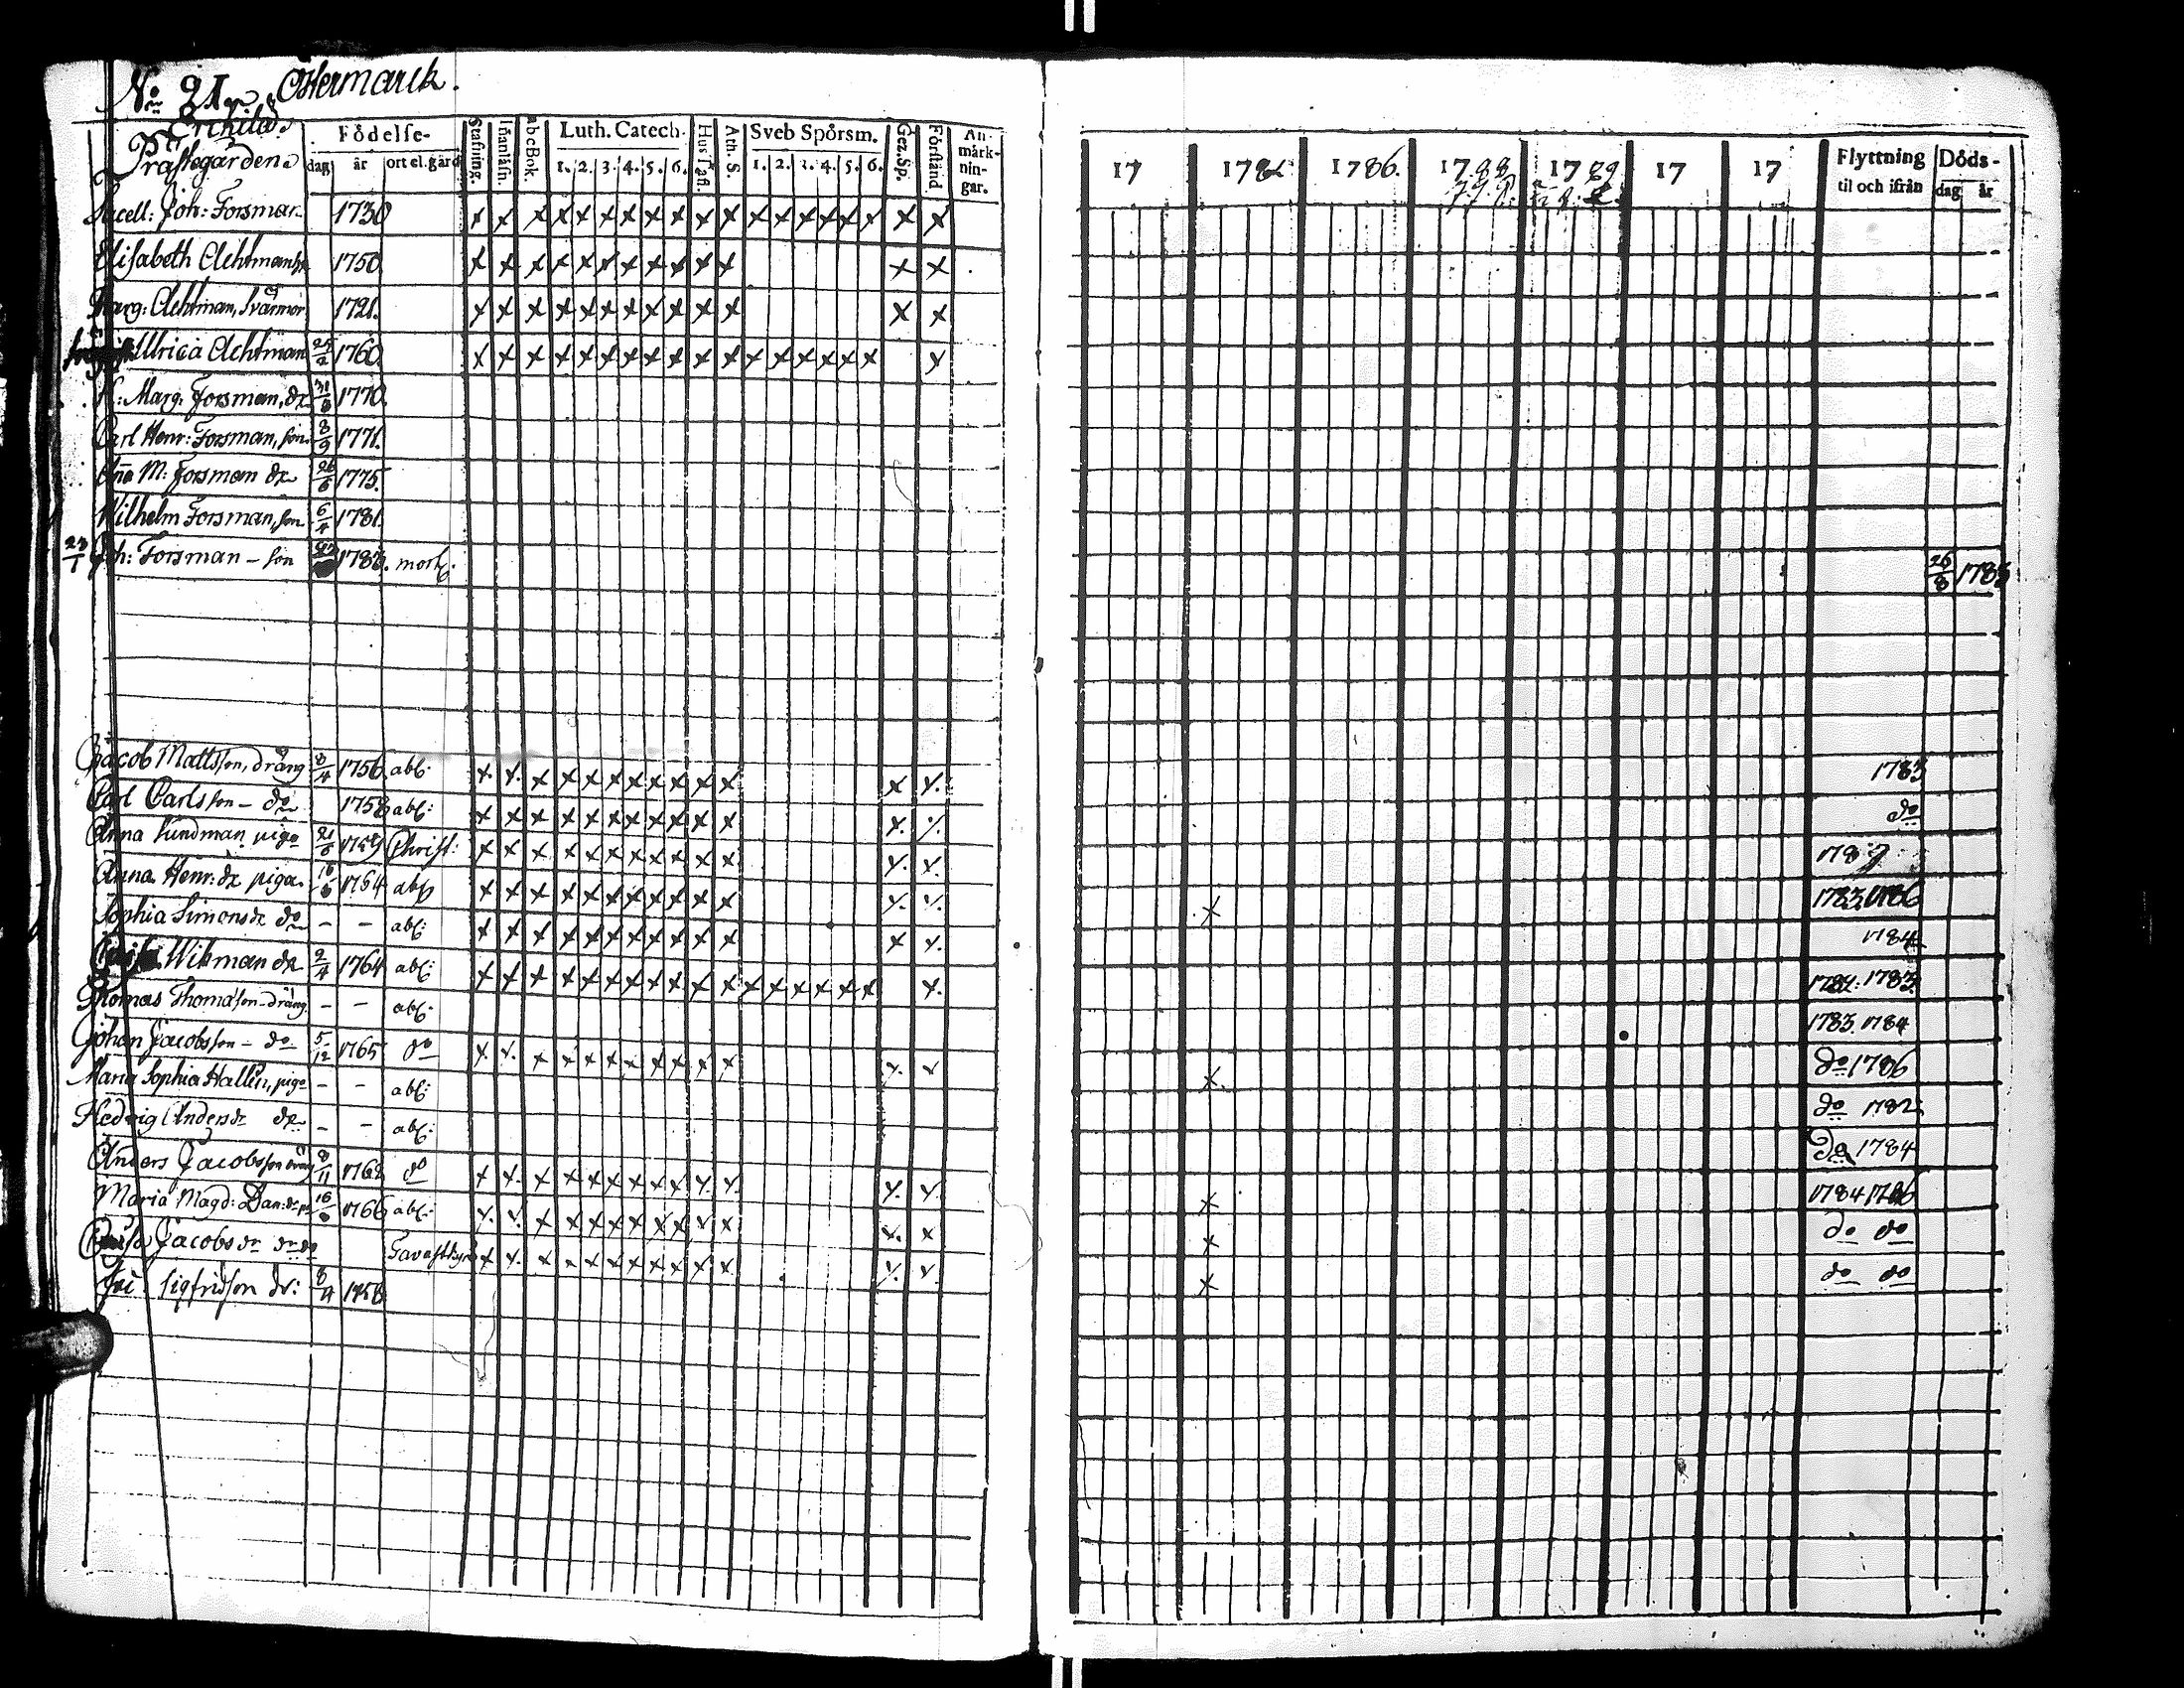 No 21. Östermarck.
Erchilä
Prästegården
Födelse-
dag år ort el. gård
Stafning. Innanläsn. abcBok. Luth. Catech. 1. 2. 3. 4. 5. 6. Hus Tafl. Ath. S. Sveb Spörsm. 1. 2. 3. 4. 5. 6. Gez. Sp. Förstånd Anmärkningar.
17 1786. 1788 1789 17 17
Flyttning til och ifrån
Döds- dag år
Sacell: Joh: Forsman 1730 x x x x x x x x x x x x x x x x x x x
Elisabeth Achtman 1750 x x x x x x x x x x x x x
Marg: Achtman, Svärmor 1721. x x x x x x x x x x x x x
Ulrica Achtman 1760 x x x x x x x x x x x x x x x x x x
Marg. Forsman, dr 1770.
Carl Henr: Forsman, son 8/9 1771.
Aña M: Forsman dr 26/6 1775.
Wilhelm Forsman, son 6/4 1781.
23/1 Joh: Forsman – son 1783. mort. 26/8 1783
Jacob Mattsson, dräng 8/4 1756 abl: x x x x x x x x x x x x x 1783
Carl Carlsson – do 1758 abl: x x x x x x x x x x x x do
Anna Sundman piga 21/6 1759 Christ: x x x x x x x x x x x x x 178
Anna Henr: dr piga 1764 x x x x x x x x x x x x x x 1783 1786
Sophia Simons dr do – – abl: x x x x x x x x x x x x x 1784
Wikman dr 2/4 1764 abl: x x x x x x x x x x x x x x x x x x 1783
Thomas Thomasson dräng – – abl: 1783. 1784
Johan Jacobsson – do 5/12 1765 do x x x x x x x x x x x x x x do 1786
Maria Sophia Hallin, piga – – abl: do 1782
Hedvig Anders dr – – abl: do 1784
Anders Jacobsson dräng 8/11 1762 do x x x x x x x x x x x x x x 1784 1786
Maria Magd: Dan: dr 1766 abl: x x x x x x x x x x x x x x do do
Jacobs dr do Tavastkyro x x x x x x x x x x x x x x do do
Sigfridson dr: 8/4 1758